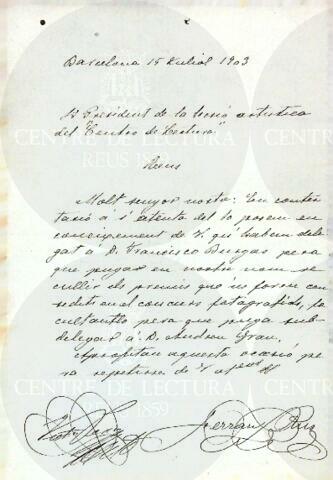 Barcelona 15 Juliol 1903
Sr President de la secció artistica
del "Centro de Lectura"
Reus
Molt senyor nostre: En contes-
tació á s' atenta del 10 posem en
coneixement de V. qu' habem dele-
gat á D. Francisco Burgas pera
que pugas en nostre nom re-
cullir els premis que 'ns foren con-
cedits en el concurs fotografich, fa-
cultantlo pera que puga sub-
delegar á D. Andreu Grau.
Aprofitan aquesta ocasió pe-
ra repetirse de V. afms
Ferran Rus
CENTRE DE LECTURA
REUS 1859
CENTRE DE LECTURA
REUS 1859